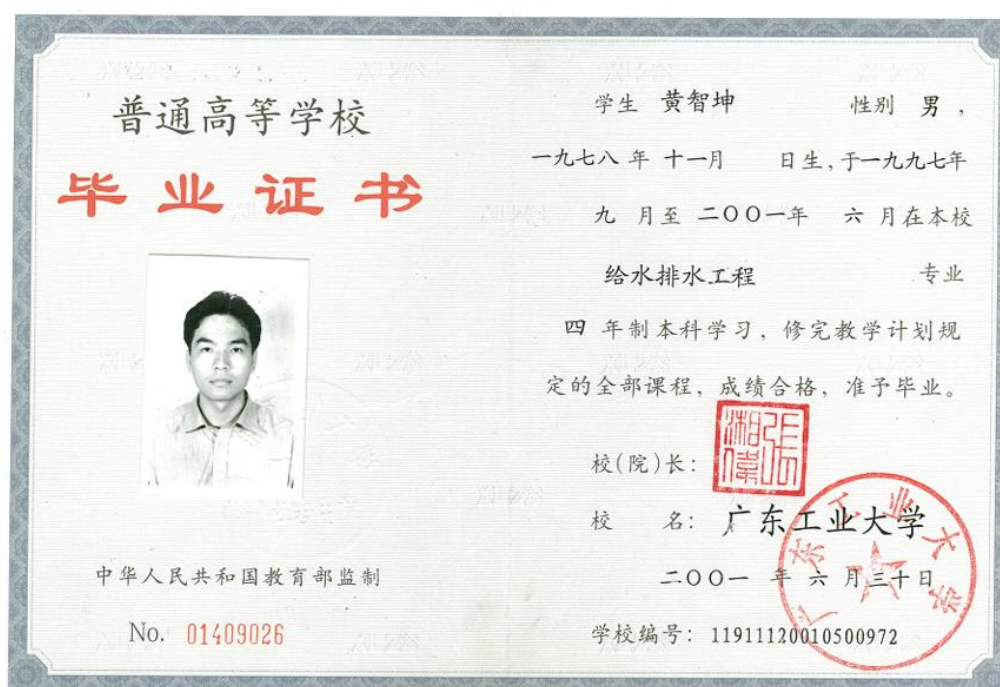 普通高等学校
毕业证书
中华人民共和国教育部监制
No. 01409026
学生 黄智坤 性别 男，
一九七八 年 十一月 日生，于一九九七年
九 月至 二〇〇一年 六 月在本校
给水排水工程 专业
四 年制本科学习，修完教学计划规
定的全部课程，成绩合格，准予毕业。
校(院)长：
张湘伟
校 名：广东工业大学
二〇〇一 年 六 月三十日
学校编号：11911120010500972
广东工业大学